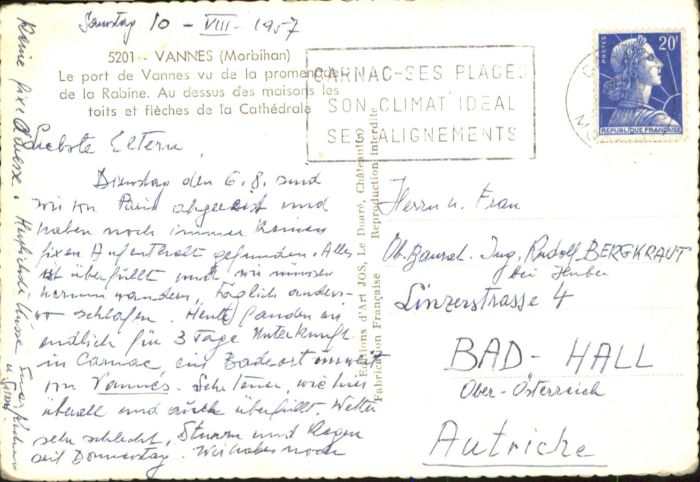 Samstag 10 - VIII - 1957
5201 - VANNES (Morbihan)
Le port de Vannes vu de la promenade
de la Rabine. Au dessus des maisons les
toits et flèches de la Cathédrale
CARNAC-SES PLAGES
SON CLIMAT IDEAL
SES ALIGNEMENTS
20F
REPUBLIQUE FRANÇAISE
Liebste Eltern,
Dienstag den 6.8. sind
wir von Paris abgereist und
haben noch immer keinen
fixen Aufenthalt gefunden. Alles
ist überfüllt und wir müssen
herum wandern, täglich anders-
wo schlafen. Heute fanden wir
endlich für 3 Tage Unterkunft
in Carnac, ein Badeort unweit
von Vannes. Sehr teuer, wie hier
überall und auch überfüllt. Wetter
sehr schlecht, Sturm und Regen
seit Donnerstag. Wir haben noch
keine fixe Adresse. Herzlichste Küsse
Editions d'Art JOS, Le Doaré, Châteaulin
Fabrication Française Reproduction interdite
Herrn u. Frau
Ob. Baurat. Ing. Rudolf BERGKRAUT
bei Huber
Linzerstrasse 4
BAD-HALL
Ober-Österreich
Autriche